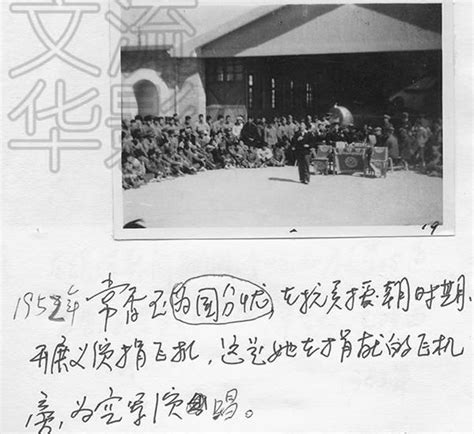 文华
溢影
19
1952年 常香玉为国分忧，在抗美援朝时期，
开展义演捐飞机，这是她在捐献的飞机
旁，为空军演唱。